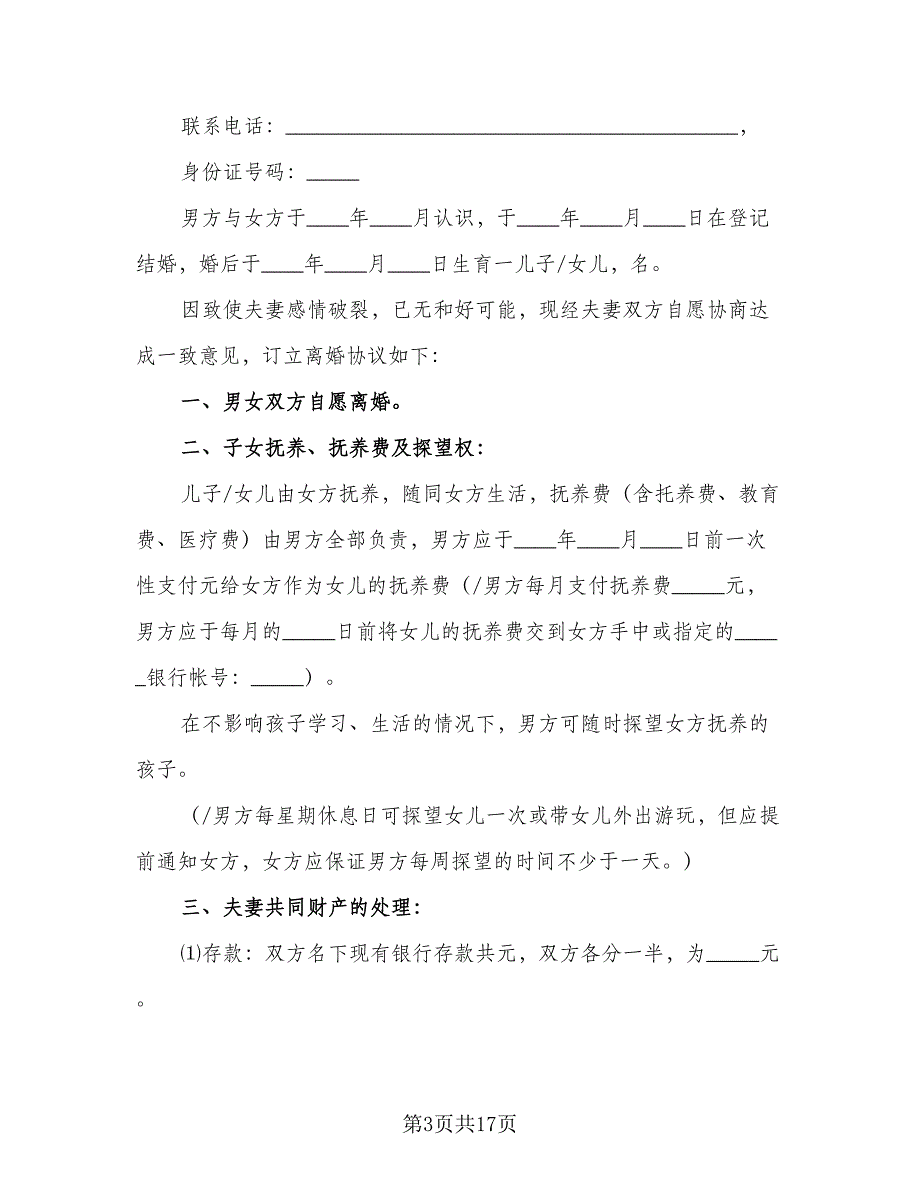 联系电话：___________________________________________，
身份证号码：_____
男方与女方于____年____月认识，于____年____月____日在登记
结婚，婚后于____年____月____日生育一儿子/女儿，名。
因致使夫妻感情破裂，已无和好可能，现经夫妻双方自愿协商达
成一致意见，订立离婚协议如下：
一、男女双方自愿离婚。
二、子女抚养、抚养费及探望权：
儿子/女儿由女方抚养，随同女方生活，抚养费（含托养费、教育
费、医疗费）由男方全部负责，男方应于____年____月____日前一次
性支付元给女方作为女儿的抚养费（/男方每月支付抚养费_____元，
男方应于每月的_____日前将女儿的抚养费交到女方手中或指定的____
_银行帐号：_____）。
在不影响孩子学习、生活的情况下，男方可随时探望女方抚养的
孩子。
（/男方每星期休息日可探望女儿一次或带女儿外出游玩，但应提
前通知女方，女方应保证男方每周探望的时间不少于一天。）
三、夫妻共同财产的处理：
⑴存款：双方名下现有银行存款共元，双方各分一半，为_____元
。
第3页共17页